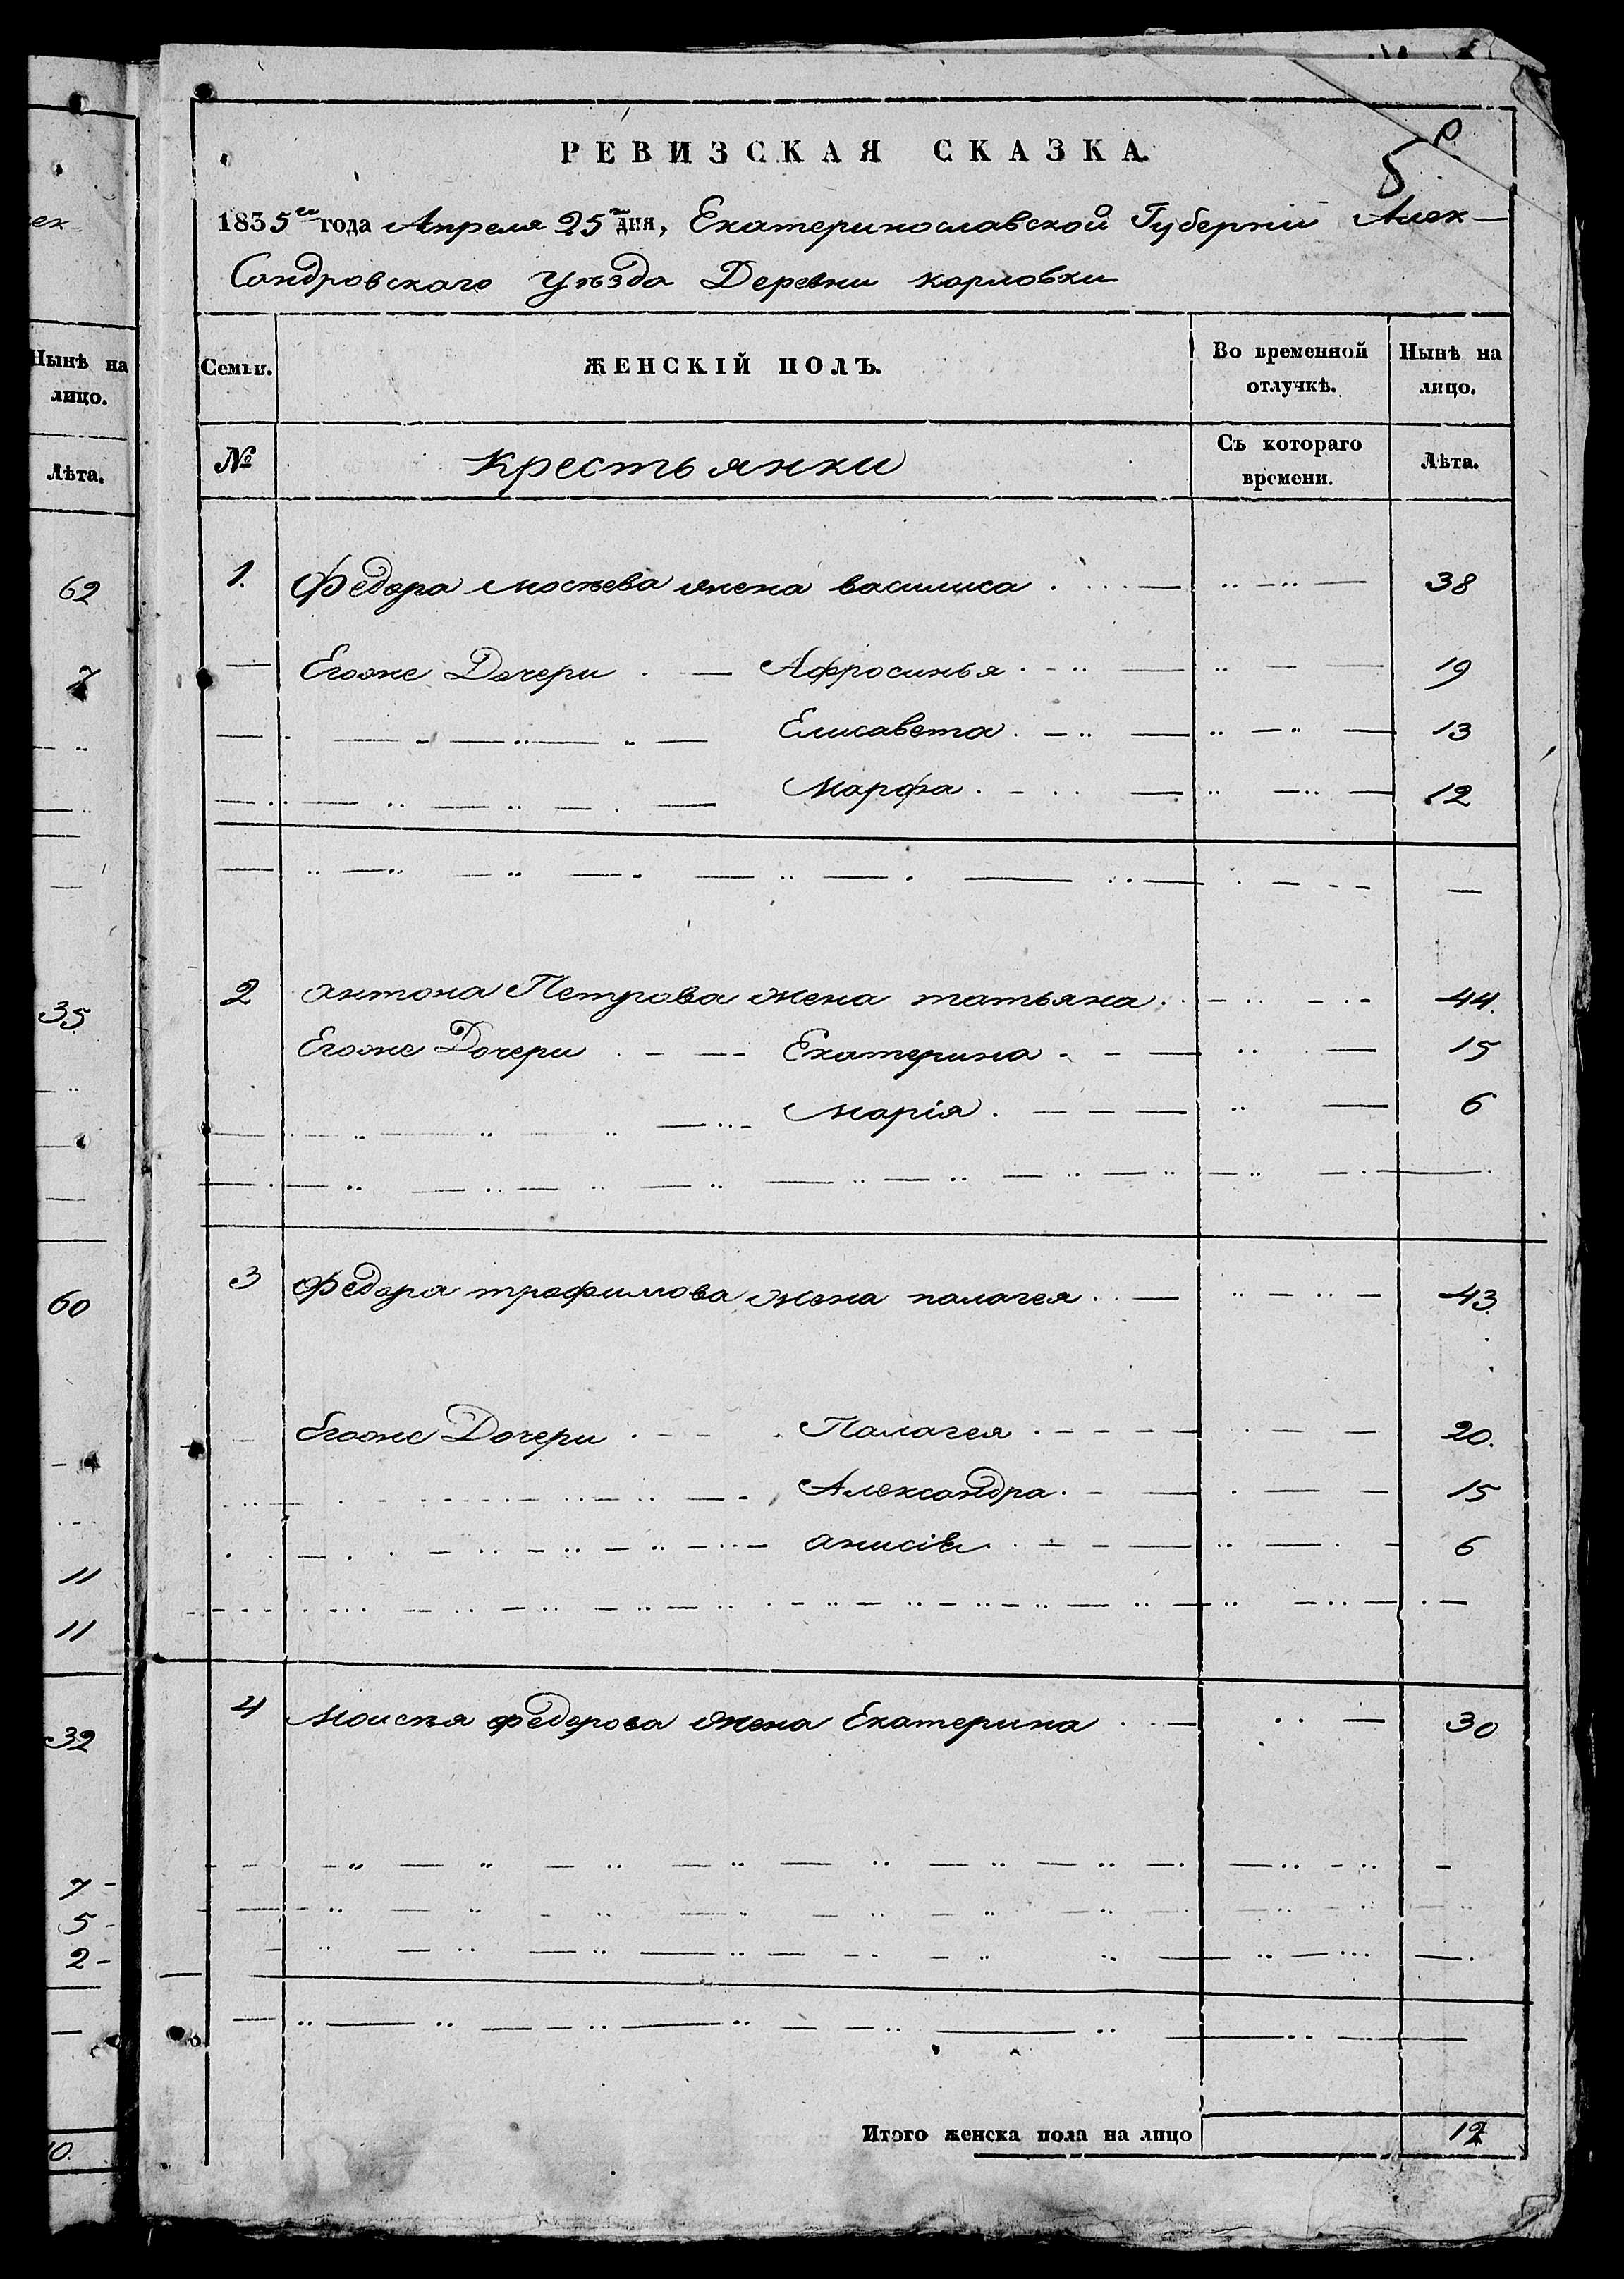 ех
Нынѣ на
лицо.
Лѣта.
62
7
35
60
11
11
32
7
5
2
10.
РЕВИЗСКАЯ СКАЗКА.
5
1835го года Апреля 25го дня, Екатеринославской Губернии Алек-
сандровскаго Уѣзда Деревни карловки
Семьи.
ЖЕНСКІЙ ПОЛЪ.
Во временной
отлучкѣ.
Нынѣ на
лицо.
№
крестьянки
Съ котораго
времени.
Лѣта.
1. Федора мосѣева жена василиса 38
Егоже Дочери Афросинья 19
Елисавета 13
Марфа 12
2 антона Петрова жена татьяна 44.
Егоже Дочери Екатерина 15
марія 6
3 Федора трофимова жена палагея 43.
Егоже Дочери Палагея 20.
Александра 15
анисія 6
4 моисѣя федорова жена Екатерина 30
Итого женска пола на лицо 12